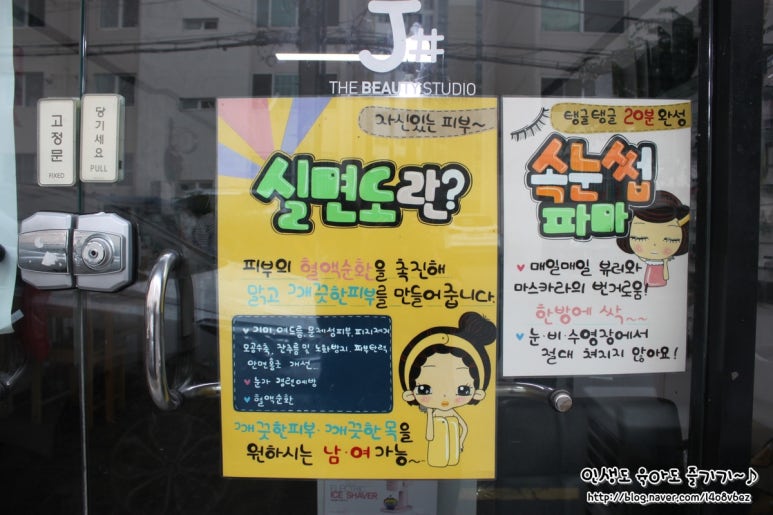 J#
THE BEAUTY STUDIO
고정문
FIXED
당기세요
PULL
자신있는 피부~
실면도란?
피부의 혈액순환을 촉진해
맑고 깨끗한피부를 만들어 줍니다.
기미, 여드름, 문제성피부, 피지제거
모공수축, 잔주름 및 노화방지, 피부탄력
안면홍조 개선...
♥ 눈가 경련예방
♥ 혈액순환
깨끗한피부·깨끗한 목을
원하시는 남·여 가능~
탱글탱글 20분 완성
속눈썹
파마
♥ 매일매일 뷰러와
마스카라의 번거로움!
한방에 싹~~
♥ 눈·비·수영장에서
절대 쳐지지 않아요!
ELECTRIC
ICE SHAVER
인생도 육아도 즐기기~♪
http://blog.naver.com/l4o8v6ez